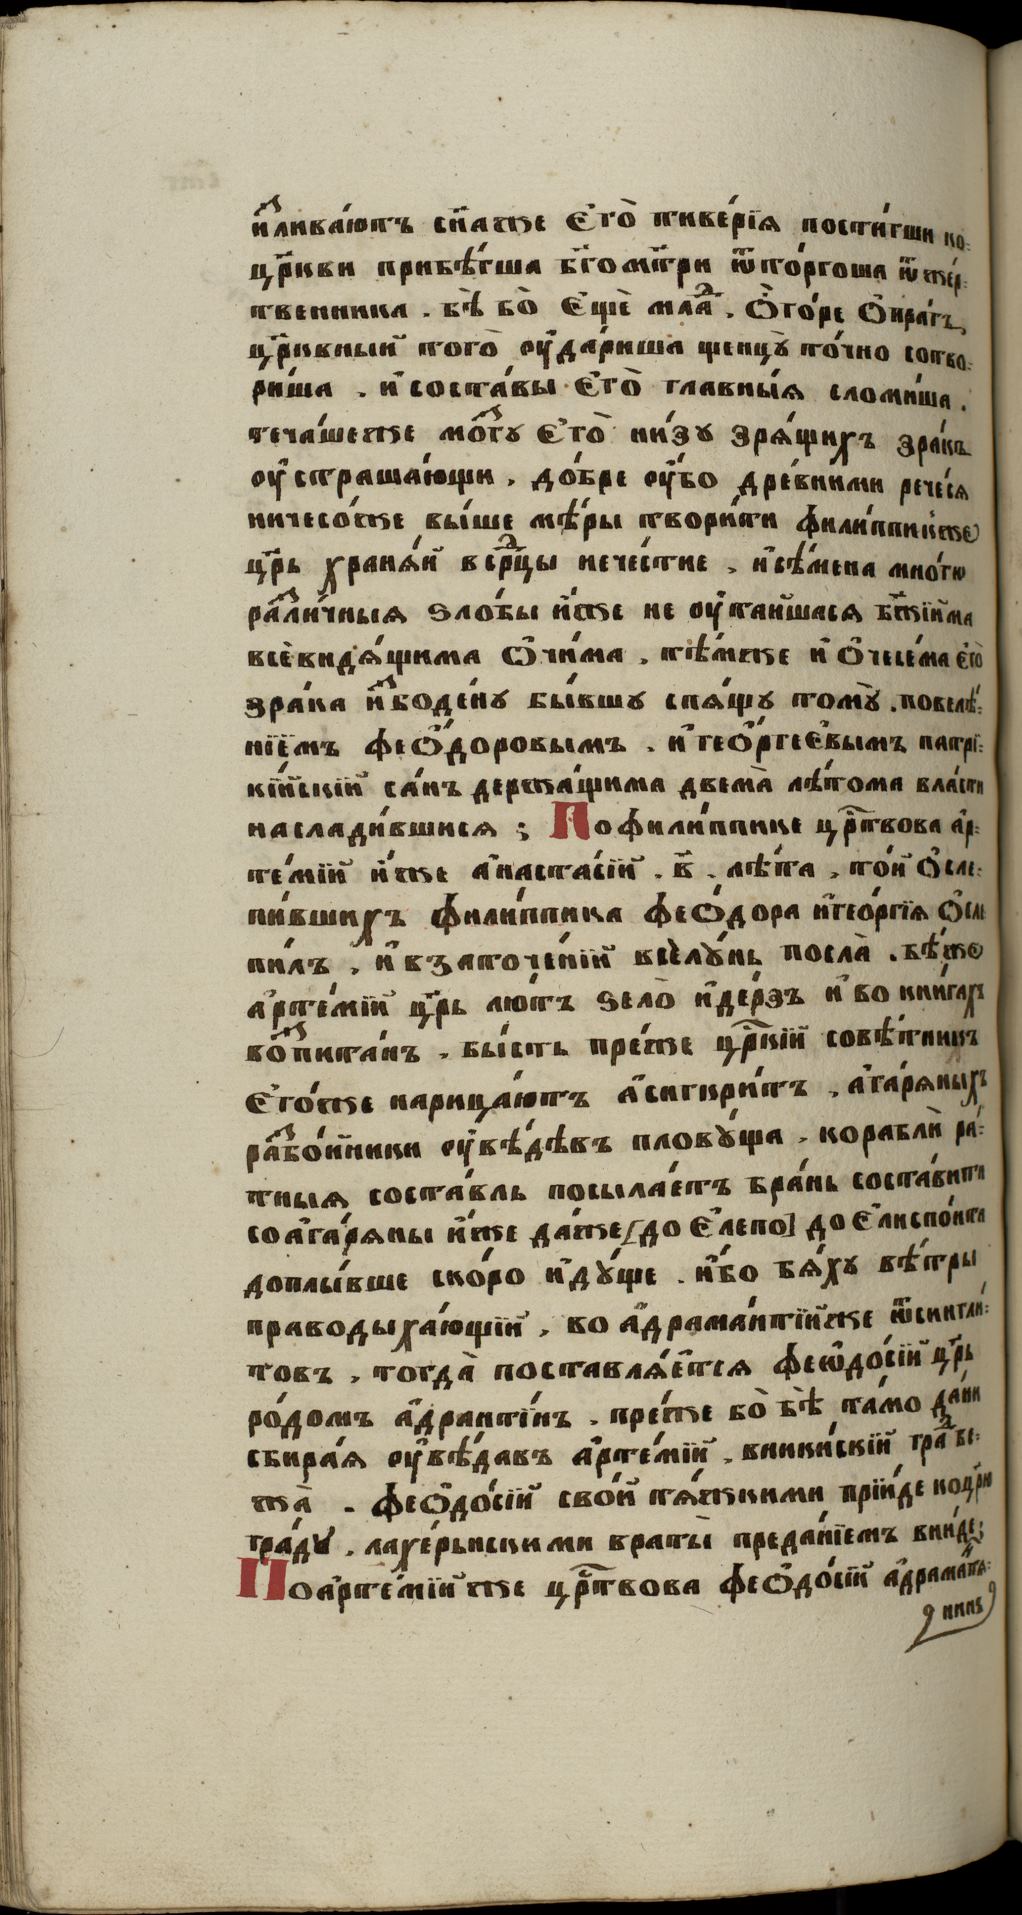 и҆зливаю́тъ сн҃а же є҆го̀ тиве́рїѧ пости́гши ко
цр҃кви прибѣ́гша бг҃ома́три ѿто́ргоша ѿ же́р
твенника . бѣ̀ бо̀ є҆щѐ мла́д . ѻ҆го́ре ѻ҆нра́гъ
цр҃ко́вный того̀ ѹ҆да́риша щенцꙋ̀ то́чно сотво
ри́ша . и҆ соста́вы є҆го̀ главны́ѧ сломи́ша .
теча́ше же мо́згꙋ є҆го̀ ни́зꙋ зрѧ́щихъ зра́къ
ѹ҆страша́ющи . до́бре ѹ҆́бо дре́вними рече́сѧ
ничесо́же вы́ше мѣ́ры твори́ти фили́ппик же
цр҃ь хранѧ́й в се́рдцы нече́стие . и҆ сѣ́мена мно́гю
разли́чныѧ ѕло́бы и҆́же не ѹ҆таи́шасѧ бж҃їи́ма
всѐвидѧ́щима ѻ҆чи́ма . тѣ́мже и҆ ѻ҆чесе́ма є҆го̀
зра́ка и҆збоде́нꙋ бы́вшꙋ спѧ́щꙋ томꙋ̀ . повелѣ́
нїемъ феѻ́доровымъ . и҆ гео́ргеєвымъ патрї
кі́йскїй са́нъ держа́щима двема̀ лѣ́тома вла́сти
наслади́вшисѧ ; По фили́ппике цр҃твова а҆р
те́мїй и҆́же а҆наста́сїй . в҃ . лѣ́та . то́й ѻ҆сле
пи́вшихъ фили́ппика феѻ́дора и҆ гео́ргїѧ ѻ҆сле
пи́лъ . и҆ в заточе́нїй в селꙋ́нь посла̀ . бѣ́же
а҆рте́мїй цр҃ь лю́тъ ѕело̀ и҆ де́рзъ и҆ во кни́гахъ
воспита́нъ . бы́сть пре́же цр҃кїй совѣ́тникъ
є҆го́же нарица́ютъ а҆сигкри́тъ . а҆га́рѧныхъ
разбо́йники ѹ҆вѣ́дѣвъ пловꙋ́ща . корабли̑ ра́
тныѧ соста́вль посыла́етъ бра́нь соста́вити
со а҆га́рѧны и҆́же да́же [до є҆лепо] до є҆лиспо́нта
доплы́вше ско́ро и҆дꙋ́ще . и҆́бо бѧ́хꙋ вѣ́тры
праводыха́ющїй . во а҆драма́нтїй же ѿ сингли́
товъ . тогда̀ поставлѧ́етсѧ феѡдо́сїй цр҃ь
ро́домъ а҆дранті́нъ . пре́же бо̀ бѣ̀ та́мо да́ни
сбира́ѧ ѹ҆вѣ́давъ а҆рте́мїй . вники́скїй гра́д бе
жа̀ . феѻдо́сїй сво́й тѧ́жкими прїи́де ко цр҃ю
гра́дꙋ . лахе́рьнскими враты̀ преда́нїемъ вни́де ;
По а҆рте́мїй же цр҃твова феѻдо́сїй а҆драма́нтѧ
нинъ